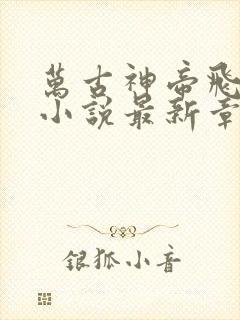 萬古神帝飛
小說最新章
銀狐小音